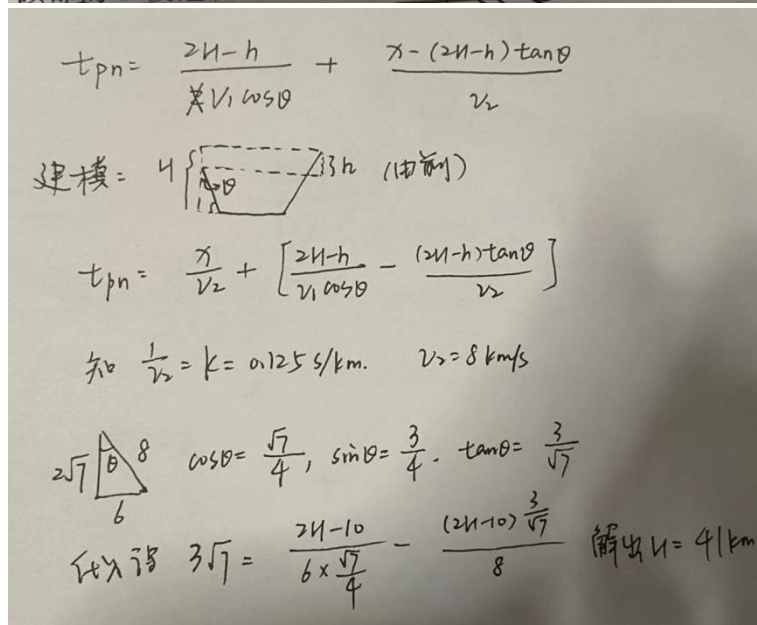 tpn = (2H-h)/(V₁cosθ) + (x-(2H-h)tanθ)/V₂
建模: H θ h (由前)
tpn = x/V₂ + [(2H-h)/(V₁cosθ) - (2H-h)tanθ/V₂]
知 1/V₂ = k = 0.125 s/km. V₂ = 8 km/s
2√7 θ 8 6 cosθ = √7/4, sinθ = 3/4. tanθ = 3/√7
代入得 3√7 = (2H-10)/(6×√7/4) - (2H-10)3/√7/8 解出H = 41km